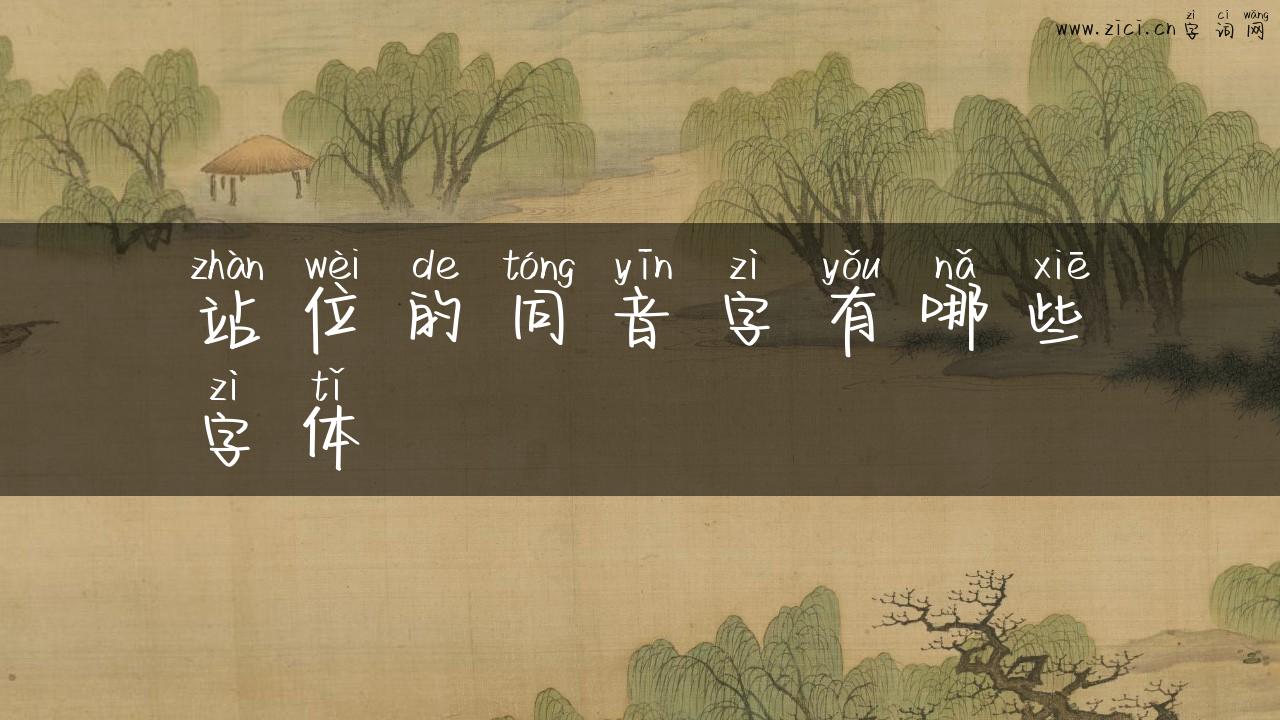 zì cí wǎng
www.zici.cn 字 词 网
zhàn wèi de tóng yīn zì yǒu nǎ xiē
站 位 的 同 音 字 有 哪 些
zì tǐ
字 体